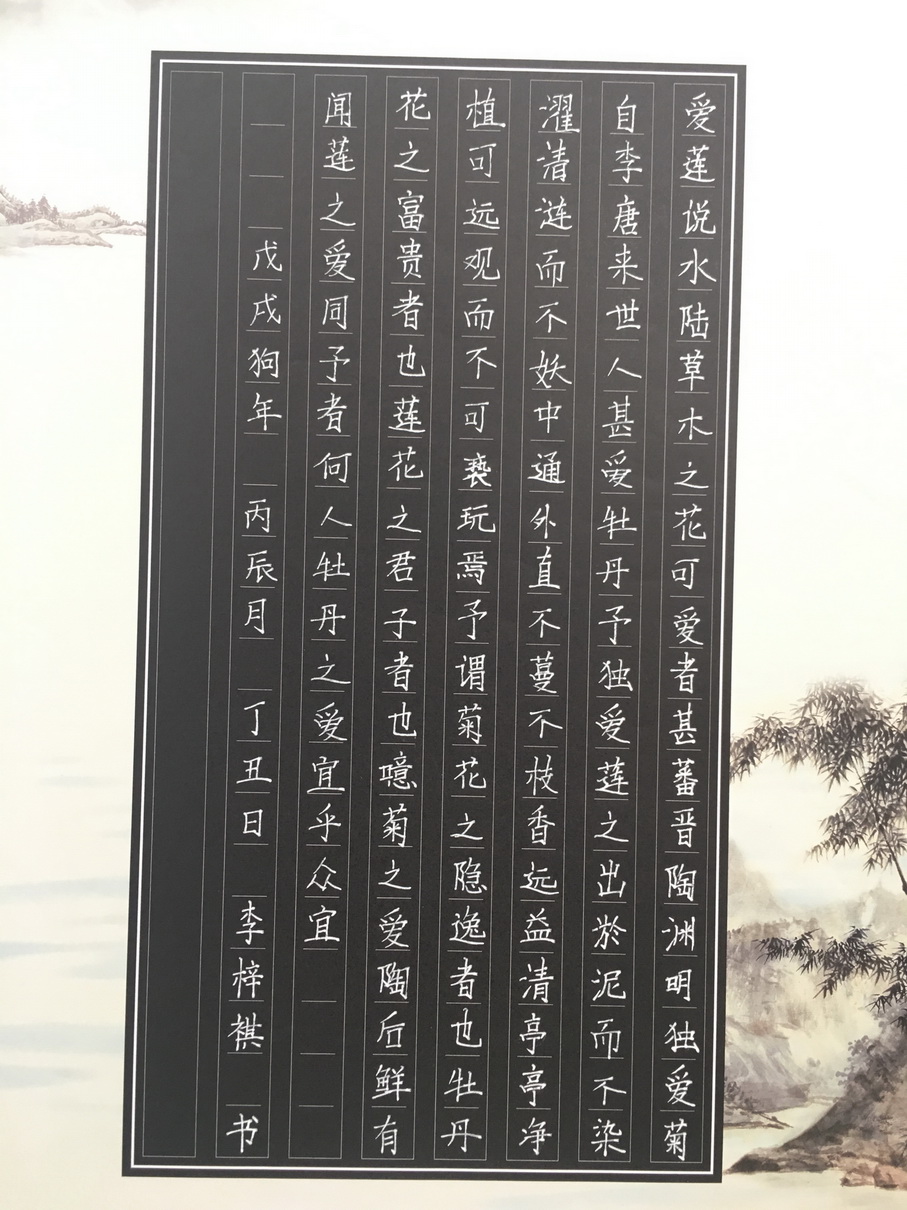 爱莲说水陆草木之花可爱者甚蕃晋陶渊明独爱菊
自李唐来世人甚爱牡丹予独爱莲之出於泥而不染
濯清涟而不妖中通外直不蔓不枝香远益清亭亭净
植可远观而不可亵玩焉予谓菊花之隐逸者也牡丹
花之富贵者也莲花之君子者也噫菊之爱陶后鲜有
闻莲之爱同予者何人牡丹之爱宜乎众宜
戊戌狗年 丙辰月 丁丑日 李梓祺 书